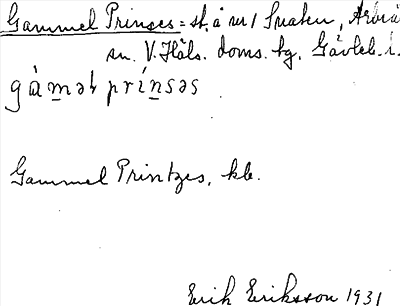 Gammel Prinses = st. å rev / Snaten, Arbrå
sn. V. Häls. doms. hg. Gävleb. l.
gàmǝl prínsǝs
Gammel Printzes, kb.
Erik Eriksson 1931